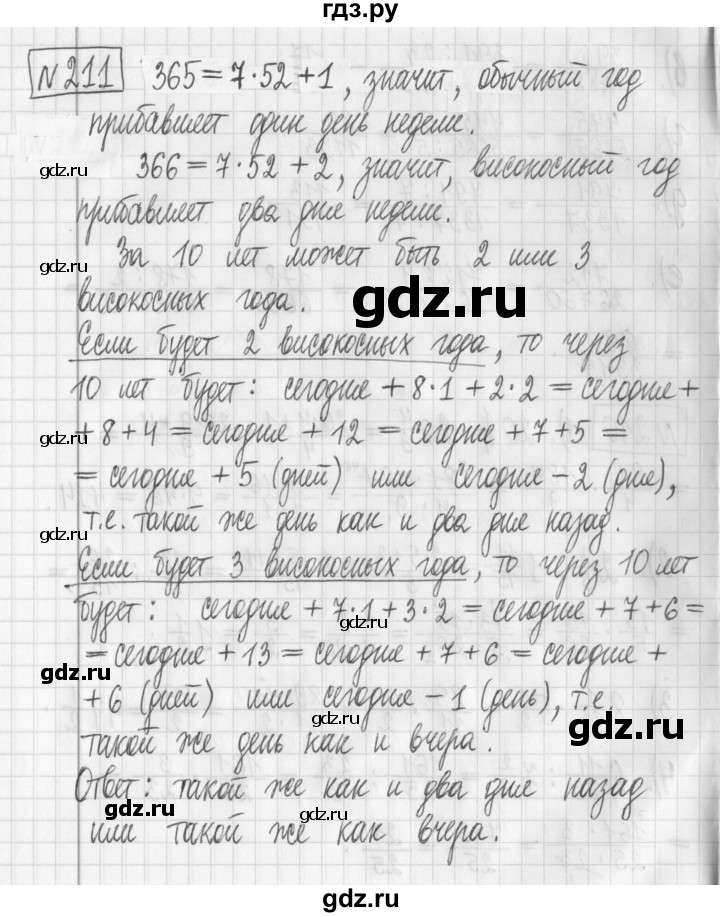 гдз.ру
№ 211 365 = 7·52 + 1, значит, обычный год
прибавляет один день недели.
gdz.ru
366 = 7·52 + 2, значит, високосный год
gdz.ru gdz.ru
прибавляет два дня недели.
За 10 лет может быть 2 или 3
gdz.ru
високосных года.
gdz.ru
Если будет 2 високосных года, то через
10 лет будет: сегодня + 8·1 + 2·2 = сегодня +
+ 8 + 4 = сегодня + 12 = сегодня + 7 + 5 =
gdz.ru gdz.ru
= сегодня + 5 (дней) или сегодня - 2 (дня),
т.е. такой же день как и два дня назад.
gdz.ru
Если будет 3 високосных года, то через 10 лет
gdz.ru
будет: сегодня + 7·1 + 3·2 = сегодня + 7 + 6 =
gdz.ru
= сегодня + 13 = сегодня + 7 + 6 = сегодня +
gdz.ru
+ 6 (дней) или сегодня - 1 (день), т.е.
gdz.ru gdz.ru
такой же день как и вчера.
Ответ: такой же как и два дня назад
gdz.ru gdz.ru
или такой же как вчера.
gdz.ru